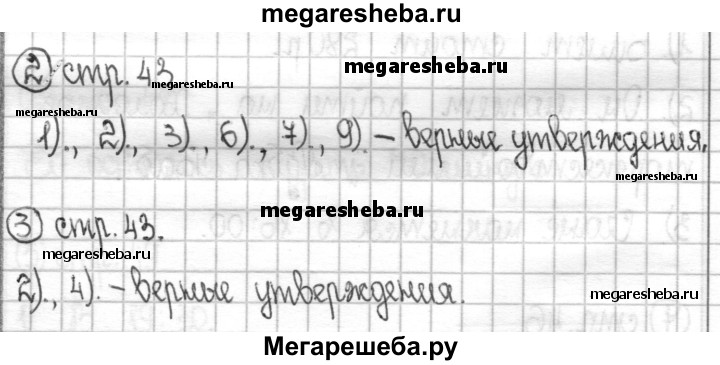 megaresheba.ru
② стр. 43
megaresheba.ru
megaresheba.ru
megaresheba.ru
1)., 2)., 3)., 6)., 7)., 9). – верные утверждения.
megaresheba.ru
megaresheba.ru
③ стр. 43.
megaresheba.ru
2)., 4). – верные утверждения.
megaresheba.ru
Мегарешеба.ру